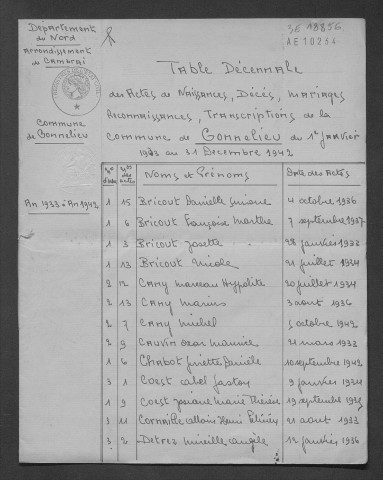 Département
du Nord
Arrondissement
de Cambrai
Commune
de Gonnelieu
3E 18856
AE10234
Table Décennale
des Actes de Naissances, Décés, mariages
Reconnaissances, Transcriptions de la
commune de Gonnelieu du 1er Janvier
1933 au 31 Decembre 1942
An 1933 à An 1942
Nos des Actes Noms et Prénoms Date des Actes
1 15 Bricout Danielle Simone 4 octobre 1936
1 6 Bricout Françoise Marthe 7 septembre 1937
1 3 Bricout Josette 28 janvier 1933
1 13 Bricout Nicole 21 juillet 1934
2 12 Cany Hippolyte 20 juillet 1934
2 13 Cany Marius 3 août 1936
2 7 Cany Michel 5 octobre 1942
2 9 Cauvin Oscar Maurice 21 mars 1933
1 6 Chabot Danièle 10 septembre 1942
3 1 Coest Gaston 9 janvier 1934
1 9 Coest Josiane Marie Thérèse 19 septembre
3 11 Cornaille Henri 21 août 1933
3 2 Detrez Mireille 12 janvier 1936